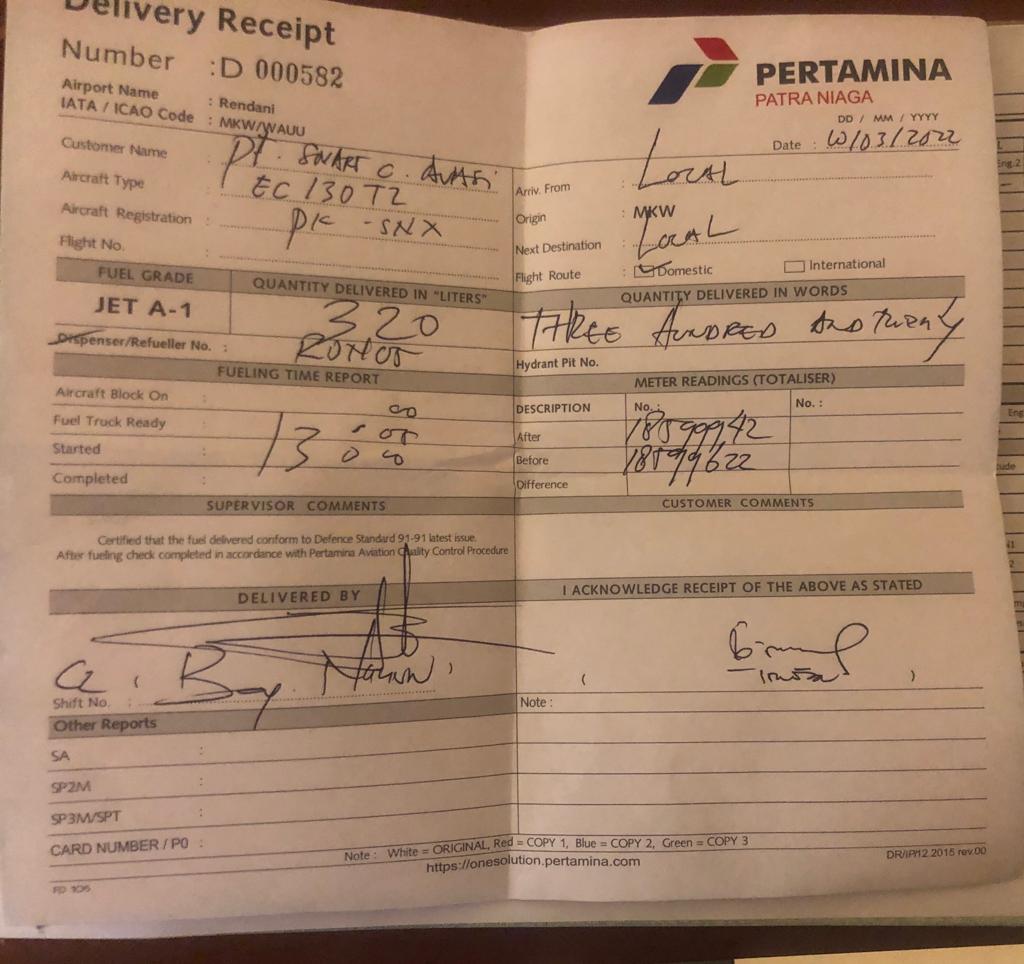 Delivery Receipt
Number : D 000582
PERTAMINA
PATRA NIAGA
Airport Name : Rendani
IATA / ICAO Code : MKW/WAUU
DD / MM / YYYY
Date : /03/2022
Customer Name : PT. SMART C. AVIASI
Aircraft Type EC 130 T2
Aircraft Registration : PK - SNX
Flight No. :
Arriv. From : LOCAL
Origin : MKW
Next Destination : LOCAL
Flight Route : Domestic International
FUEL GRADE QUANTITY DELIVERED IN "LITERS" QUANTITY DELIVERED IN WORDS
JET A-1 320 THREE HUNDRED AND TWENTY
Dispenser/Refueller No. :
Hydrant Pit No.
FUELING TIME REPORT METER READINGS (TOTALISER)
Aircraft Block On :
Fuel Truck Ready :
Started :
Completed :
13
00
05
00
DESCRIPTION No. : No. :
After 18599942
Before 18599622
Difference
SUPERVISOR COMMENTS CUSTOMER COMMENTS
Certified that the fuel delivered conform to Defence Standard 91-91 latest issue.
After fueling check completed in accordance with Pertamina Aviation Quality Control Procedure
DELIVERED BY I ACKNOWLEDGE RECEIPT OF THE ABOVE AS STATED
( )
Shift No. : Note :
Other Reports
SA :
SP2M :
SP3M/SPT :
CARD NUMBER / P0 :
Note : White = ORIGINAL, Red = COPY 1, Blue = COPY 2, Green = COPY 3
https://onesolution.pertamina.com
DR/IP/12.2015 rev.00
FD 106
Eng.2
Eng